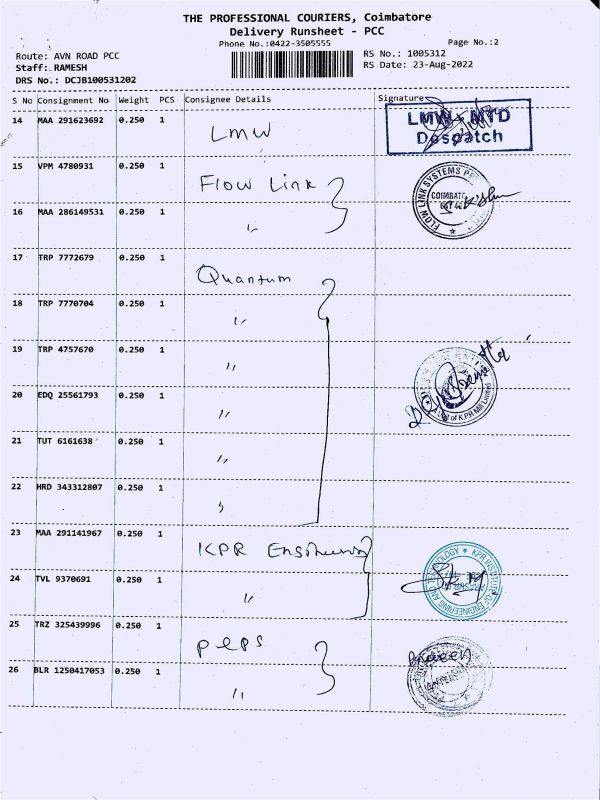 THE PROFESSIONAL COURIERS, Coimbatore
Delivery Runsheet - PCC
Phone No.:0422-3505555
Page No.:2
Route: AVN ROAD PCC
RS No.: 1005312
Staff: RAMESH
RS Date: 23-Aug-2022
DRS No.: DCJB100531202
S No Consignment No Weight PCS Consignee Details Signature
14 MAA 291623692 0.250 1 LMW
LMW - MTD
Despatch
15 VPM 4780931 0.250 1 Flow Link
FLOW LINK SYSTEMS
COIMBATORE
16 MAA 286149531 0.250 1 "
17 TRP 7772679 0.250 1 Quantum
18 TRP 7770704 0.250 1 "
19 TRP 4757670 0.250 1 "
20 EDQ 25561793 0.250 1 "
of KPR Mill Limited
21 TUT 6161638 0.250 1 "
22 HRD 343312807 0.250 1 "
23 MAA 291141967 0.250 1 KPR Engineering
KPR INSTITUTE OF ENGINEERING AND TECHNOLOGY
24 TVL 9370691 0.250 1 "
25 TRZ 325439996 0.250 1 peps
Praveen
26 BLR 1250417053 0.250 1 "